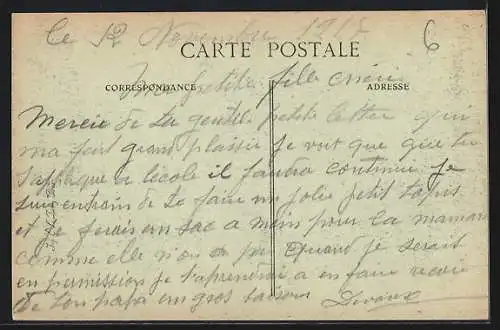 Le 12 Novembre 191
6
CARTE POSTALE
CORRESPONDANCE
ADRESSE
Ma petite fille chérie
Mercie de ta gentille petite letter qui
ma fait grand plaisir Je voit que tu
t'applique a l'école il faudra continuer Je
suis entrain de te faire un jolie petit tapis
et je ferais un sac a main pour ta maman
comme elle n'on a pas Quand je serait
en permission je t'aprendrai a en faire recois
de ton papa un gros baisers